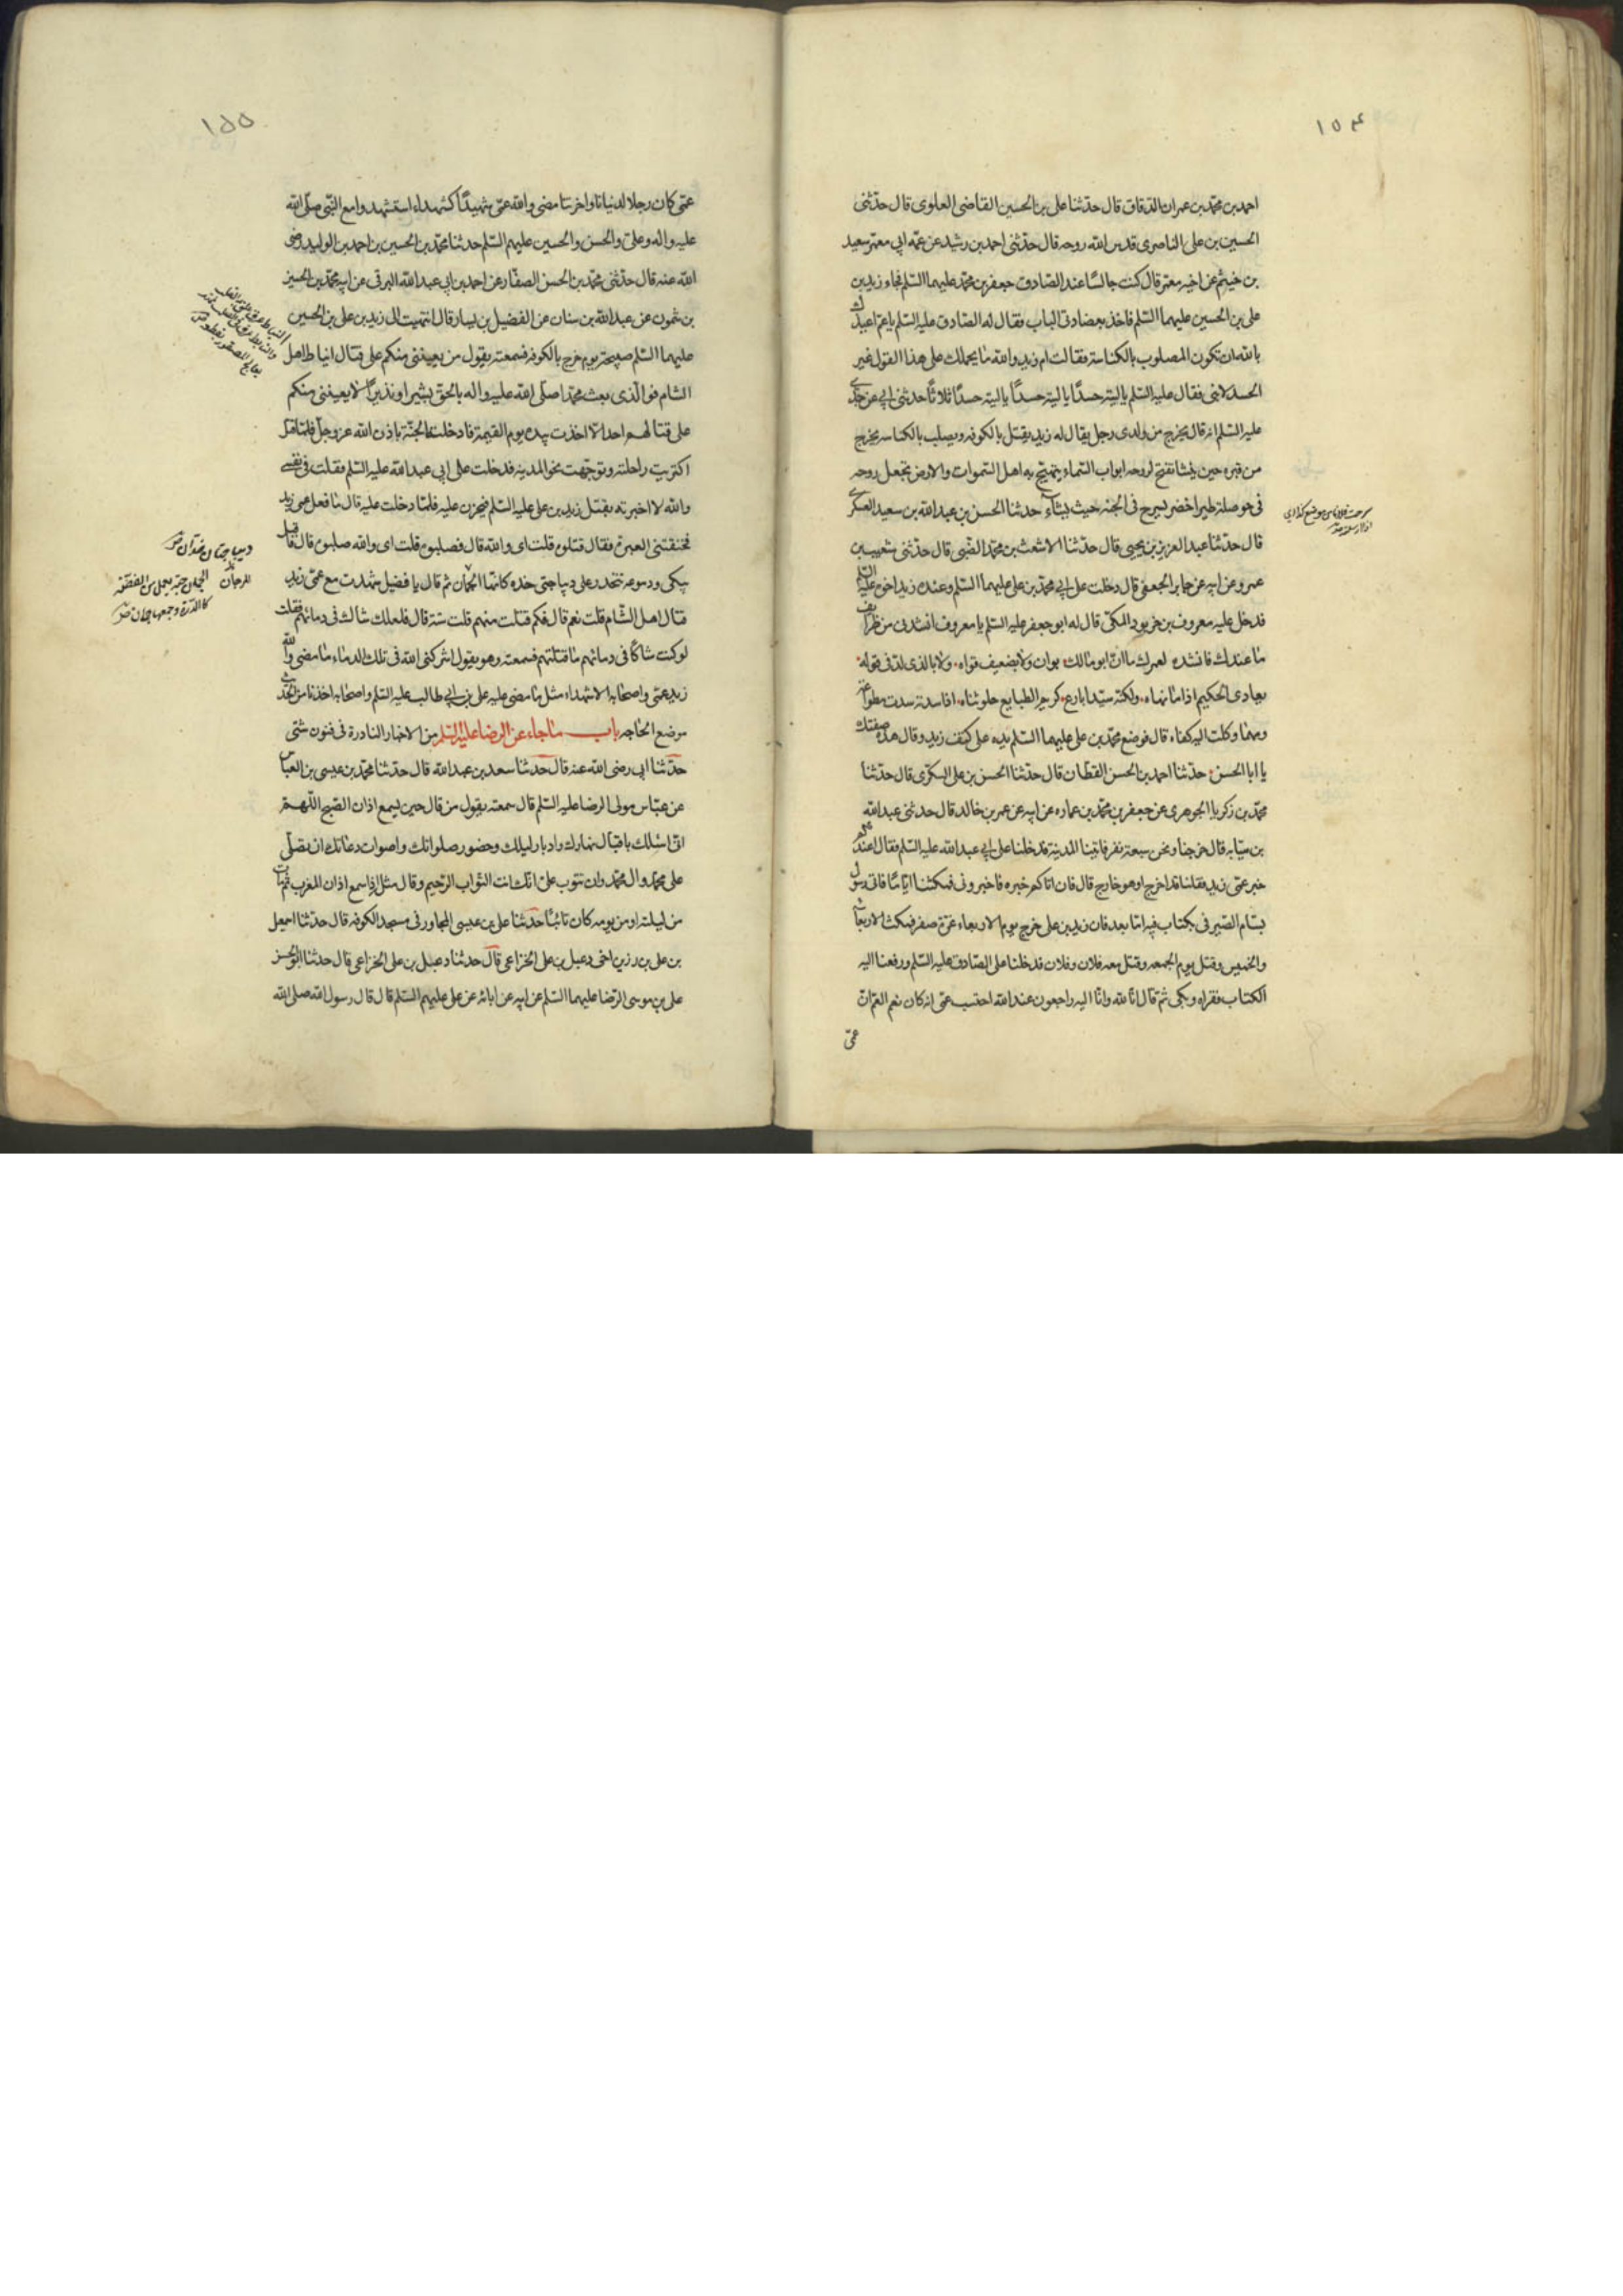 ١٥٤
احمد بن محمد بن عمران الدقاق قال حدثنا علی بن الحسین القاضی العلوی قال حدثنی
الحسین بن علی الناصری قدس الله روحه قال حدثنی احمد بن رشید عن عمه ابی معمر سعید
بن خیثم عن اخیه معمر قال کنت جالسًا عند الصادق جعفر بن محمد علیهما السلم فجاء زید بن
علی بن الحسین علیهما السلم فاخذ بعضادتی الباب فقال له الصادق علیه السلم یا عم اعیذک
بالله ان تکون المصلوب بالکناسة فقالت ام زید والله ما یحملک علی هذا القول غیر
الحسد لابنی فقال علیه السلم یا لیته حسدًا یا لیته حسدًا یا لیته حسدًا ثلاثًا حدثنی ابی عن جدی
علیه السلم انه قال یخرج من ولدی رجل یقال له زید یقتل بالکوفه ویصلب بالکناسه یخرج
من قبره حین ینشا تفتح لروحه ابواب السماء یبتهج به اهل السموات والارض تجعل روحه
فی حوصلة طیر اخضر لیسرح فی الجنه حیث یشاء حدثنا الحسن بن عبد الله بن سعید العسکری
قال حدثنا عبد العزیز بن یحیی قال حدثنا الاشعث بن محمد الضبی قال حدثنی شعیب بن
عمرو عن ابیه عن جابر الجعفی قال دخلت علی ابی محمد بن علی علیهما السلم وعنده زید اخوه علیه السلم
فدخل علیه معروف بن خربوذ المکی قال له ابو جعفر علیه السلم یا معروف انشدنی من طرایف
ما عندک فانشده لعمرک ما ان ابو مالک بوان ولا بضعیف قواه ولا بالذی لدی قوله
یعادی الحکیم اذا ما نهاه ولکنه سید ابارع کریم الطبایع حلو نثاه اذا سدته سدت مطواعة
ومهما وکلت الیه کفاه قال فوضع محمد بن علی علیهما السلم یده علی کتف زید وقال هذه صفتک
یا ابا الحسن حدثنا احمد بن الحسن القطان قال حدثنا الحسن بن علی السکری قال حدثنا
محمد بن زکریا الجوهری عن جعفر بن محمد بن عماره عن ابیه عن عمر بن خالد قال حدثنی عبد الله
بن سیابه قال خرجنا ونحن سبعة نفر فاتینا المدینة فدخلنا علی ابی عبد الله علیه السلم فقال اعندکم
خبر عمی زید فقلنا قد خرج او هو خارج قال فان اتاکم خبره فاخبرونی فمکثنا ایامًا فاتی رسول
بسام الصیرفی بکتاب فیه اما بعد فان زید بن علی خرج یوم الاربعاء غرة صفر فمکث الاربعاء
والخمیس وقتل یوم الجمعه وقتل معه فلان وفلان فدخلنا علی الصادق علیه السلم ورفعنا الیه
الکتاب فقراه وبکی ثم قال انا لله وانا الیه راجعون عند الله احتسب عمی انه کان نعم العم ان
عمی
١٥٥
عمی کان رجلا لدنیانا واخرتنا مضی والله عمی شهیدًا کشهداء استشهدوا مع النبی صلی الله
علیه واله وعلی والحسن والحسین علیهم السلم حدثنا محمد بن الحسین بن احمد بن الولید رضی
الله عنه قال حدثنی محمد بن الحسن الصفار عن احمد بن ابی عبد الله البرقی عن ابیه محمد بن الحسین
بن شمون عن عبد الله بن سنان عن الفضیل بن یسار قال انتهیت الی زید بن علی بن الحسین
علیهما السلم صبیحة یوم خرج بالکوفه فسمعته یقول من یعیننی منکم علی قتال انباط اهل
الشام فوالذی بعث محمدا صلی الله علیه واله بالحق بشیرا ونذیرًا لا یعیننی منکم
علی قتالهم احد الا اخذت بیده یوم القیمة فادخلته الجنة باذن الله عز وجل فلما قتل
اکتریت راحلة وتوجهت نحو المدینه فدخلت علی ابی عبد الله علیه السلم فقلت فی نفسی
والله لا اخبرته بقتل زید بن علی علیه السلم فیجزن علیه فلما دخلت علیه قال ما فعل عمی زید
فخنقتنی العبرة فقال قتلوه قلت ای والله قال فصلبوه قلت ای والله صلبوه قال فاقبل
یبکی ودموعه تنحدر علی دیباجتی خده کانها الجمان ثم قال یا فضیل شهدت مع عمی زید
قتال اهل الشام قلت نعم قال فکم قتلت منهم قلت ستة قال فلعلک شاک فی دمائهم فقلت
لو کنت شاکًا فی دمائهم ما قتلتهم فسمعته وهو یقول اشرکنی الله فی تلک الدماء ما مضی والله
زید عمی واصحابه الا شهداء مثل ما مضی علیه علی بن ابی طالب علیه السلم واصحابه اخذنا من الحدیث
موضع الحاجه باب ما جاء عن الرضا علیه السلم من الاخبار النادرة فی فنون شتی
حدثنا ابی رضی الله عنه قال حدثنا سعد بن عبد الله قال حدثنا محمد بن عیسی بن العباس
عن عباس مولی الرضا علیه السلم قال سمعته یقول من قال حین یسمع اذان الصبح اللهم
انی اسئلک باقبال نهارک وادبار لیلک وحضور صلواتک واصوات دعاتک ان تصلی
علی محمد وال محمد وان تتوب علی انک انت التواب الرحیم وقال مثل اذا سمع اذان المغرب ثم مات
من لیلته او من یومه کان تائبًا حدثنا علی بن عیسی المجاور فی مسجد الکوفه قال حدثنا اسمعیل
بن علی بن رزین اخی دعبل بن علی الخزاعی قال حدثنا دعبل بن علی الخزاعی قال حدثنا ابو الحسن
علی بن موسی الرضا علیهما السلم عن ابیه عن ابائه عن علی علیهم السلم قال قال رسول الله صلی الله